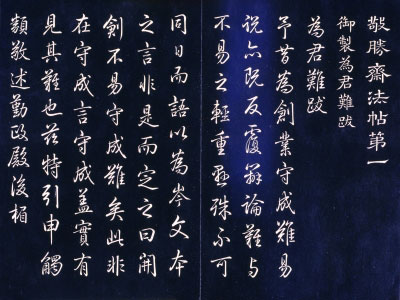 敬勝齋法帖第一
御製為君難跋
為君難跋
予昔為創業守成難易
説亦既反覆辨論難与
不易之輕重懸殊不可
同日而語以為岑文本
之言非是而定之曰開
創不易守成難矣此非
在守成言守成盖實有
見其難也兹特引申觸
類敬述勤政殿後楣